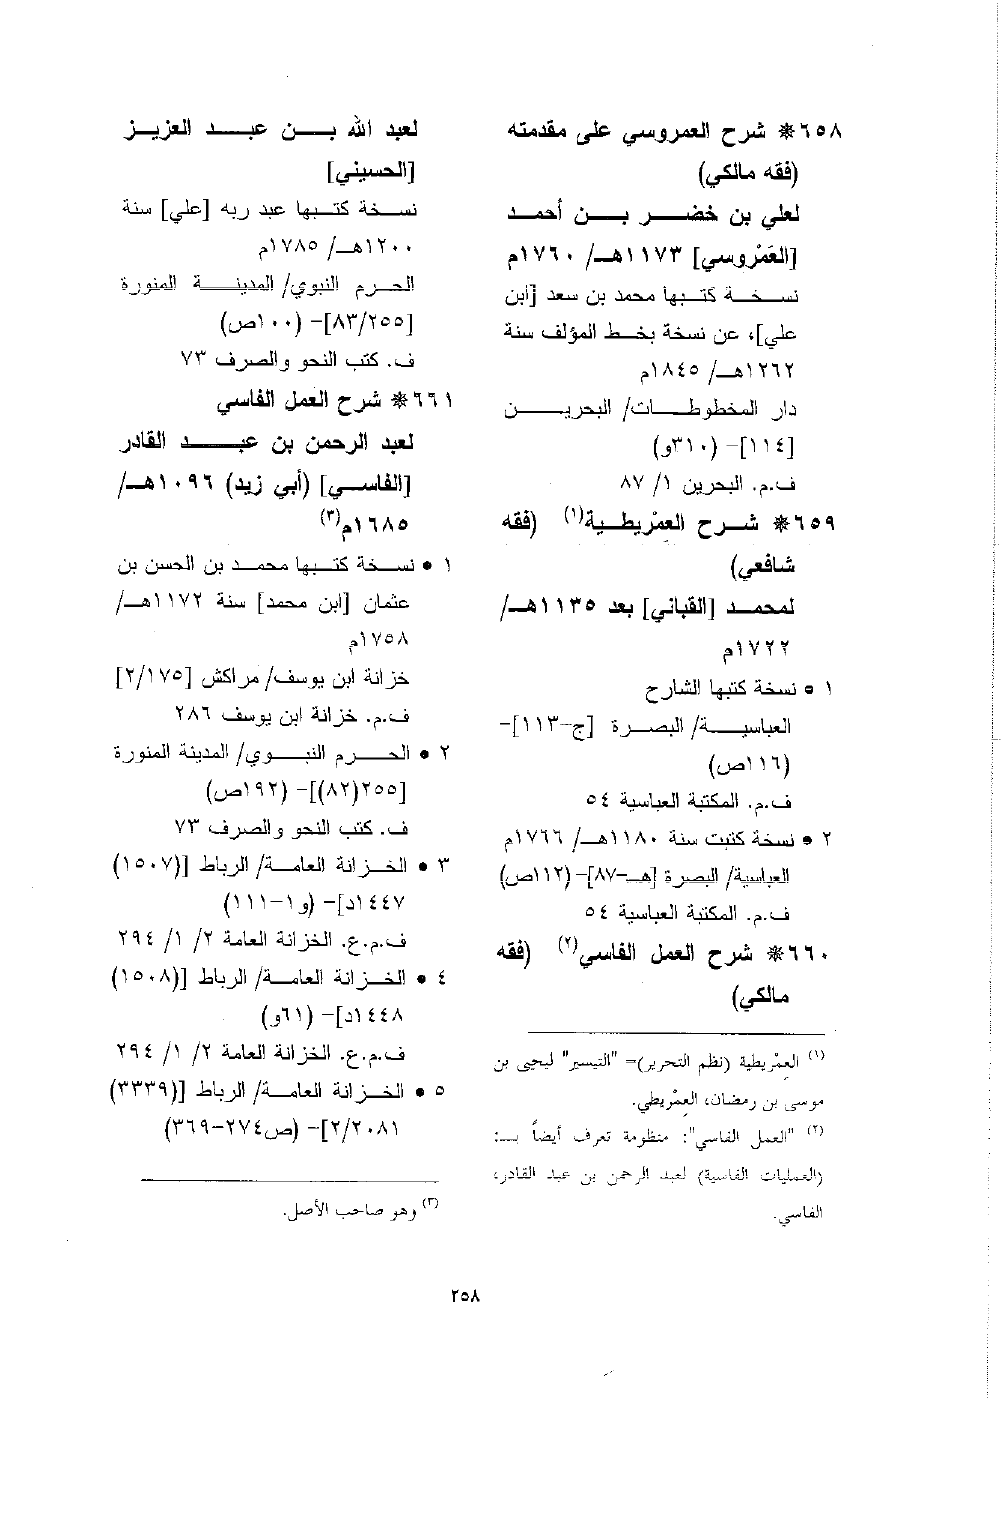 ٦٥٨* شرح العمروسي على مقدمته
(فقه مالكي)
لعلي بن خضر بن أحمد
[العَمْروسي] ١١٧٣هـ/ ١٧٦٠م
نسخة كتبها محمد بن سعد [ابن
علي]، عن نسخة بخط المؤلف سنة
١٢٦٢هـ/ ١٨٤٥م
دار المخطوطات/ البحرين
[١١٤]- (٣١٠و)
ف.م. البحرين ١/ ٨٧
٦٥٩* شرح العِمْريطية(١) (فقه
شافعي)
لمحمد [القباني] بعد ١١٣٥هـ/
١٧٢٢م
١ • نسخة كتبها الشارح
العباسية/ البصرة [ج-١١٣]-
(١١٦ص)
ف.م. المكتبة العباسية ٥٤
٢ • نسخة كتبت سنة ١١٨٠هـ/ ١٧٦٦م
العباسية/ البصرة [هـ-٨٧]- (١١٢ص)
ف.م. المكتبة العباسية ٥٤
٦٦٠* شرح العمل الفاسي(٢) (فقه
مالكي)
(١) العِمْريطية (نظم التحرير)= "التيسير" ليحيى بن
موسى بن رمضان، العِمْريطي.
(٢) "العمل الفاسي": منظومة تعرف أيضاً بـ:
(العمليات الفاسية) لعبد الرحمن بن عبد القادر،
الفاسي.
لعبد الله بن عبد العزيز
[الحسيني]
نسخة كتبها عبد ربه [علي] سنة
١٢٠٠هـ/ ١٧٨٥م
الحرم النبوي/ المدينة المنورة
[٨٣/٢٥٥]- (١٠٠ص)
ف. كتب النحو والصرف ٧٣
٦٦١* شرح العمل الفاسي
لعبد الرحمن بن عبد القادر
[الفاسي] (أبي زيد) ١٠٩٦هـ/
١٦٨٥م(٣)
١ • نسخة كتبها محمد بن الحسن بن
عثمان [ابن محمد] سنة ١١٧٢هـ/
١٧٥٨م
خزانة ابن يوسف/ مراكش [٢/١٧٥]
ف.م. خزانة ابن يوسف ٢٨٦
٢ • الحرم النبوي/ المدينة المنورة
[٢٥٥(٨٢)]- (١٩٢ص)
ف. كتب النحو والصرف ٧٣
٣ • الخزانة العامة/ الرباط [(١٥٠٧)
١٤٤٧د]- (و١-١١١)
ف.م.ع. الخزانة العامة ٢/ ١/ ٢٩٤
٤ • الخزانة العامة/ الرباط [(١٥٠٨)
١٤٤٨د]- (٦١و)
ف.م.ع. الخزانة العامة ٢/ ١/ ٢٩٤
٥ • الخزانة العامة/ الرباط [(٣٣٣٩)
٢/٢٠٨١]- (ص٢٧٤-٣٦٩)
(٣) وهو صاحب الأصل.
٢٥٨